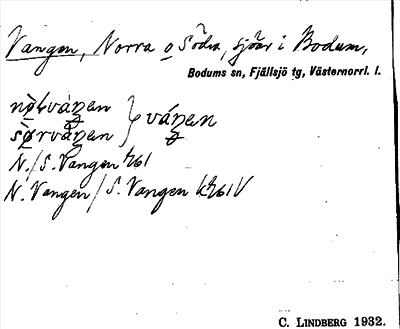 Vangen, Norra o Södra, sjöar i Bodum,
Bodums sn, Fjällsjö tg, Västernorrl. l.
nòḷváŋen } váŋen
sø̀rváŋen
N./S. Vangen k261
N. Vangen/S. Vangen k261V
C. LINDBERG 1932.